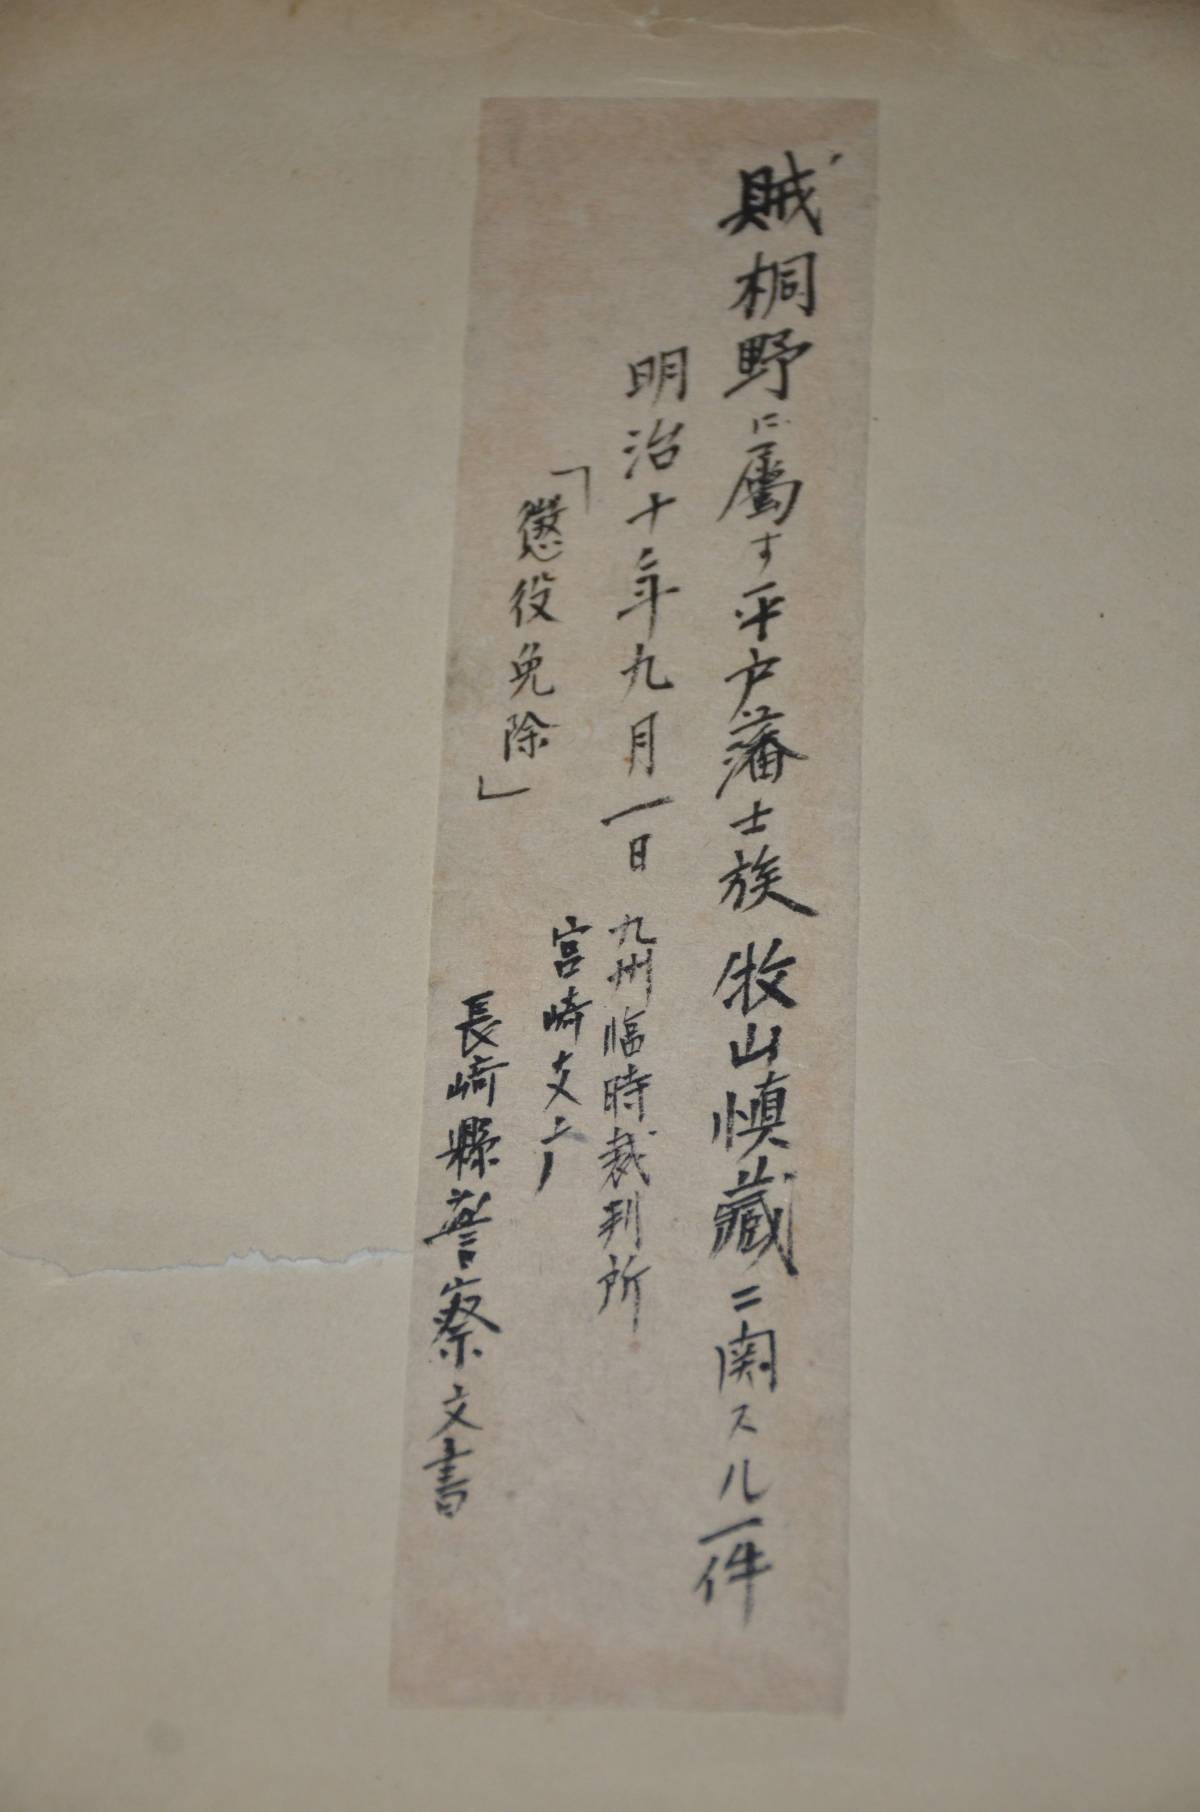 賊桐野に属す平戸藩士族 牧山慎藏ニ関スル一件
明治十年九月一日 九州臨時裁判所
宮崎支庁
「懲役免除」
長崎縣警察文書